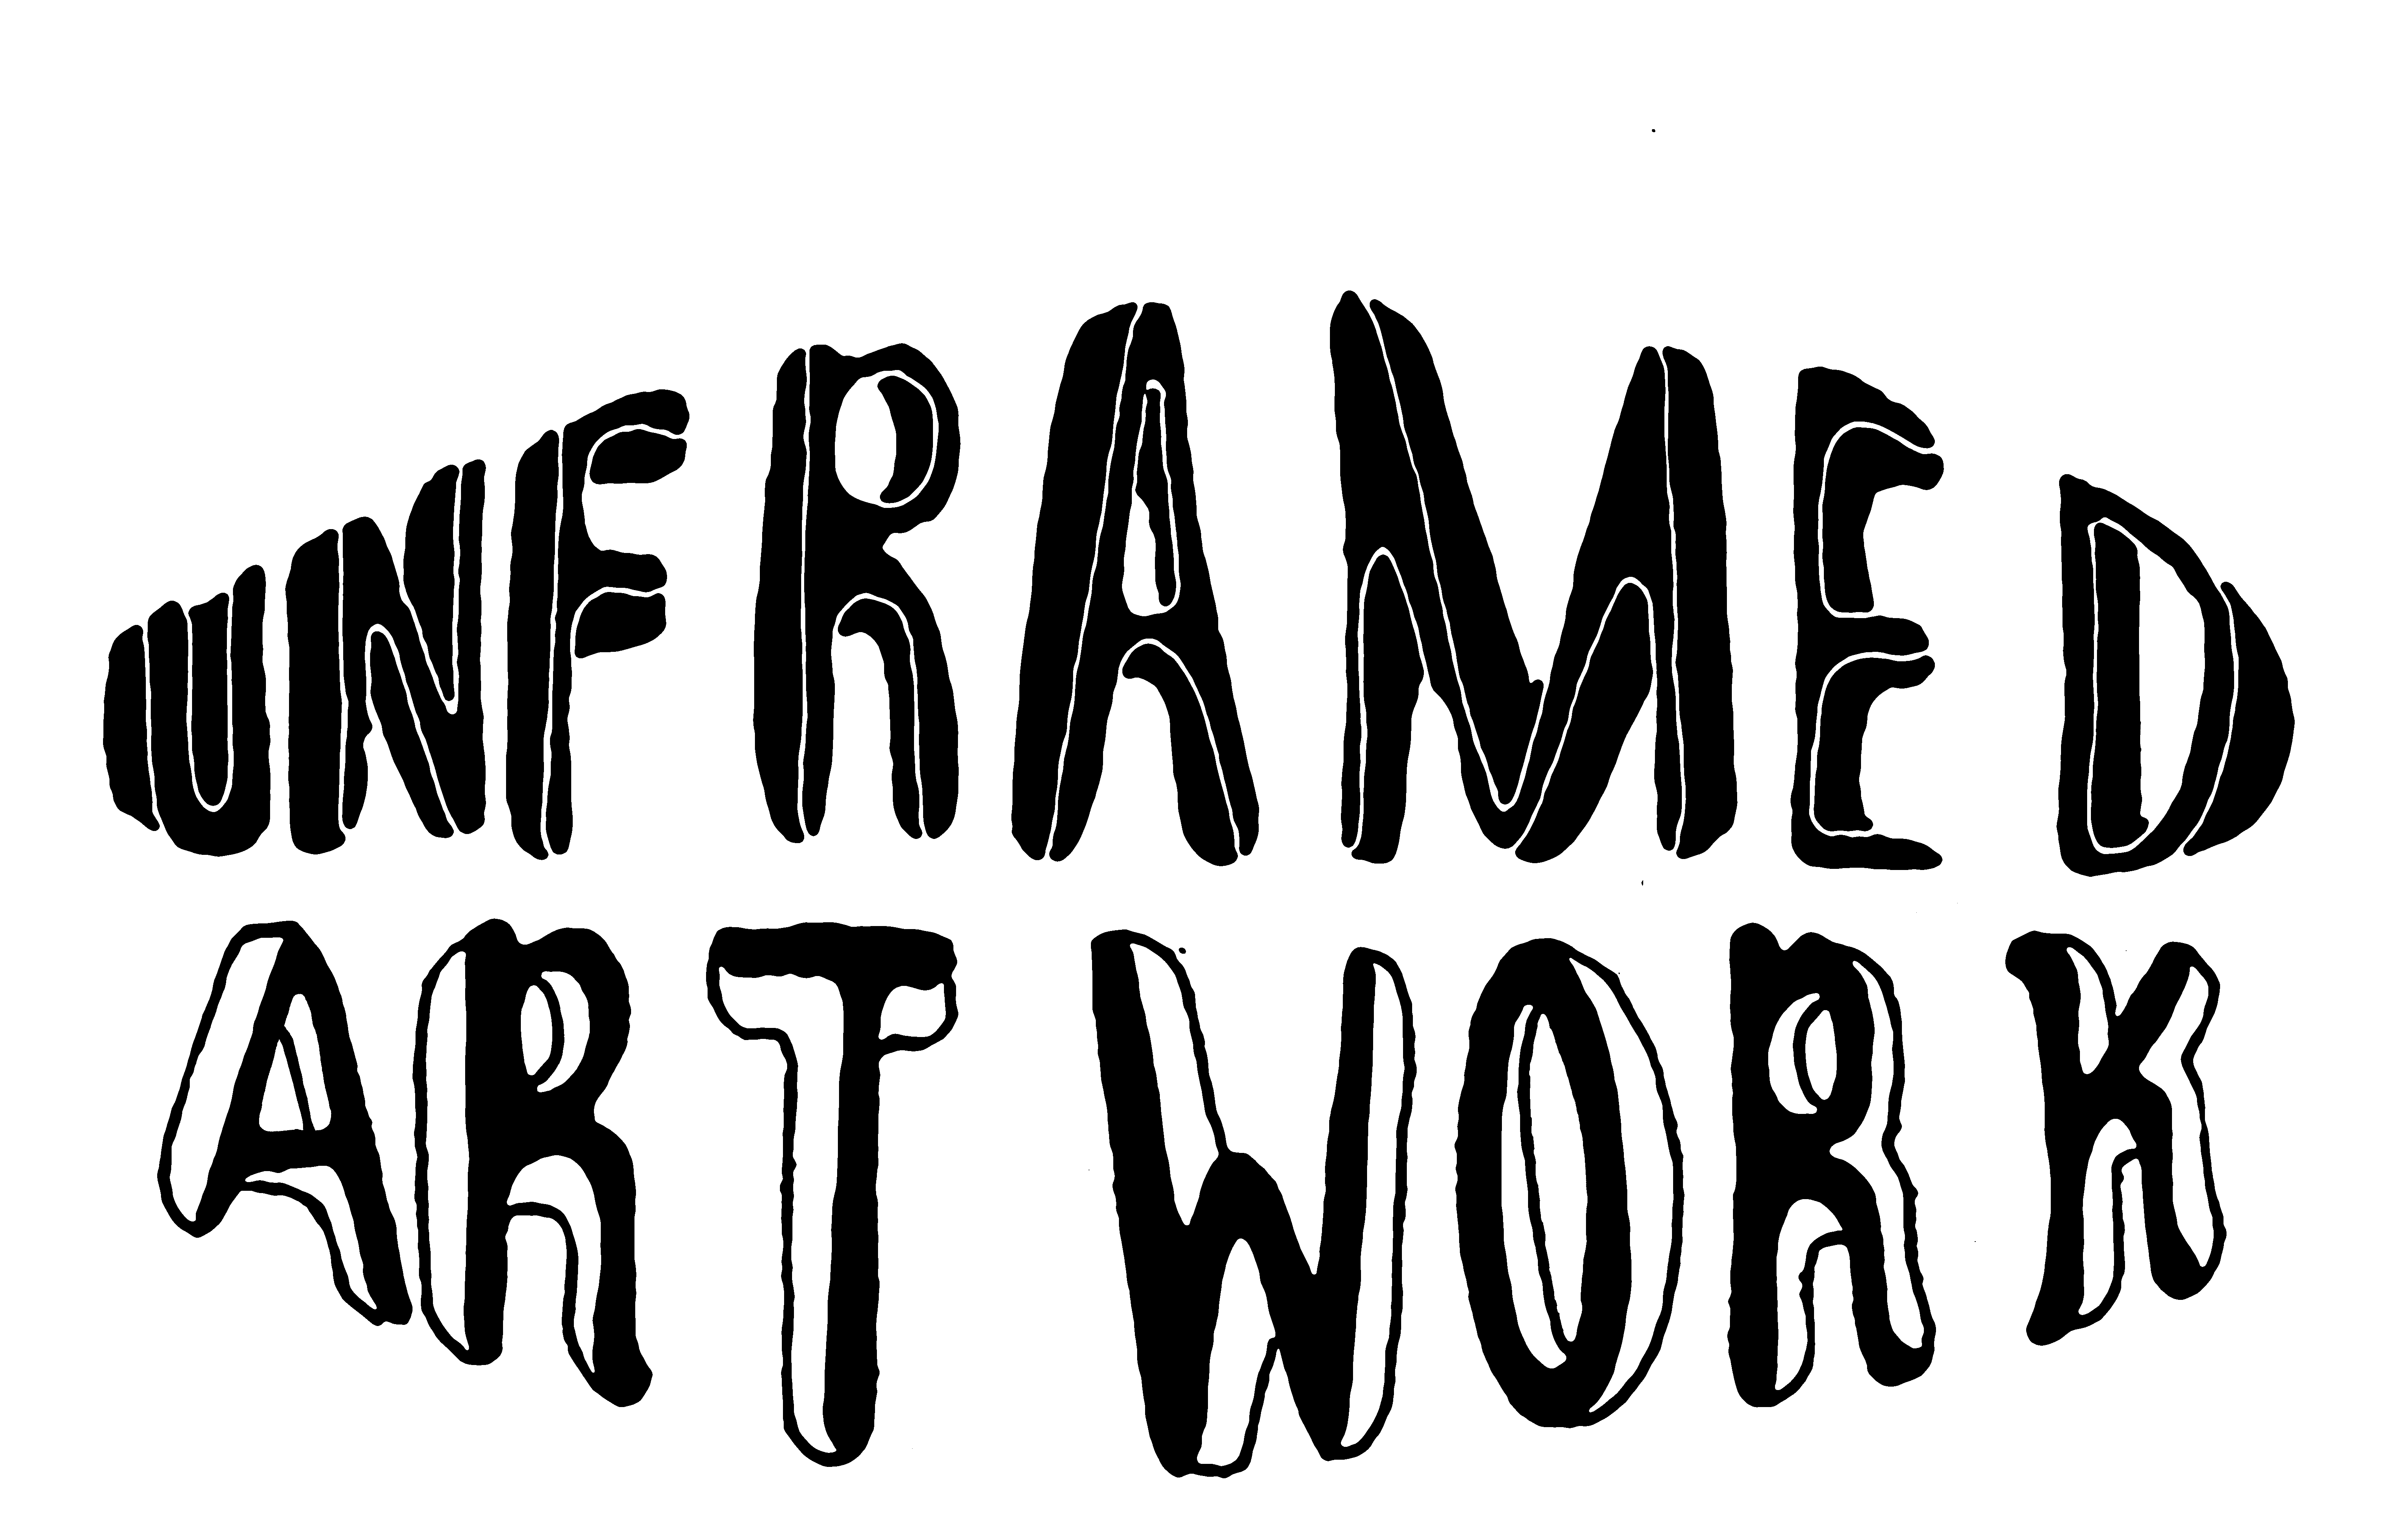 UNFRAMED
ARTWORK